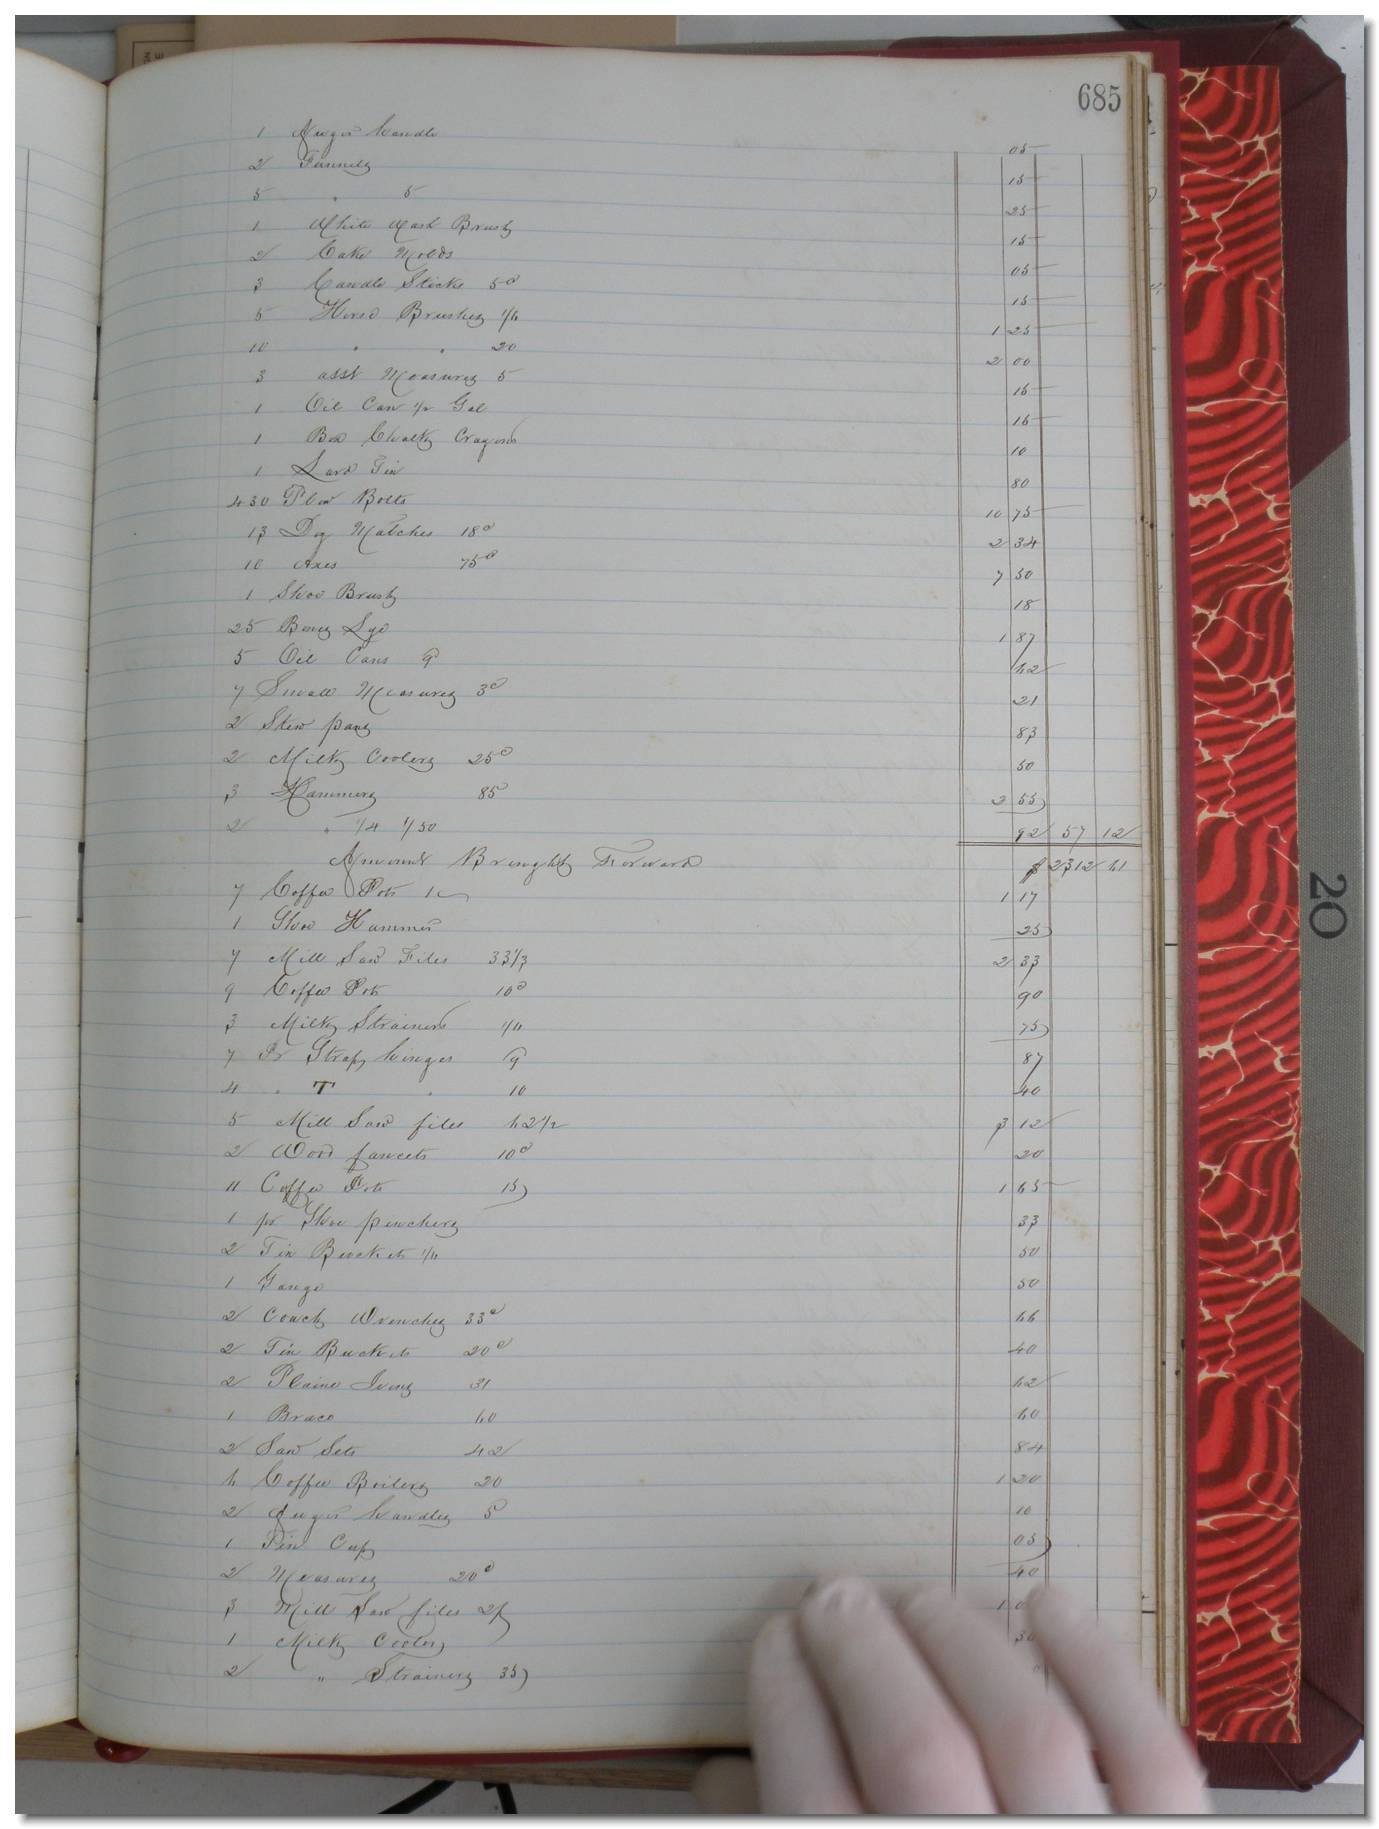 685
1 Auger handle 05
2 Funnels 15
5 " 5 25
1 White Wash Brush 15
2 Cake Molds 05
3 Candle Sticks 5c 15
5 Horse Brushes 1 25
10 " " 20 2 00
3 asst Measures 5 15
1 Oil Can 1/2 Gal 15
1 Box Chalk Crayons 10
1 Lard Tin 80
430 Plow Bolts 10 75
13 Dz Matches 18c 2 34
10 Axes 75c 7 50
1 Shoe Brush 18
25 Boxes Lye 1 87
5 Oil Cans 62
7 Small Measures 3c 21
2 Stew pans 83
2 Milk Coolers 25c 50
3 Hammers 85 2 55
2 " 1/4 1/50 92 57 12
Amount Brought Forward $ 2312 61
7 Coffee Pots 1 17
1 Shoe Hammer 25
7 Mill Saw Files 33 1/3 2 33
9 Coffee Pots 10c 90
3 Milk Strainers 75
7 Pr Strap hinges 87
4 " T " 10 40
5 Mill Saw files 62 1/2 3 12
2 Wood faucets 10c 20
11 Coffee Pots 15 1 65
1 pr Shoe pinchers 33
2 Tin Buckets 50
1 Gauge 50
2 Coach Wrenches 33c 66
2 Tin Buckets 20c 40
2 Plaine Irons 31 62
1 Brace 60 60
2 Saw Sets 42 84
6 Coffee Boilers 20 1 20
2 Auger handles 5 10
1 Tin Cup 05
2 Measures 20c 40
3 Mill Saw files 1
1 Milk Cooler 30
2 " Strainers 35
20